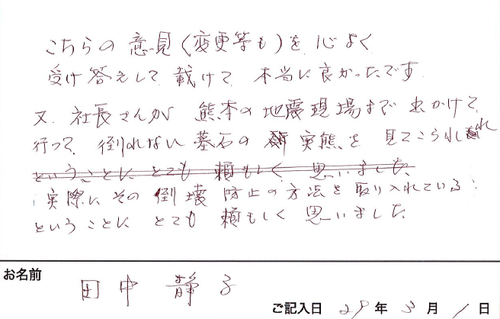 こちらの意見(変更等も)を心よく
受け答えして載けて 本当に良かったです
又、社長さんが 熊本の地震現場まで出かけて
行って、倒れない墓石の 実態を 見てこられ
ということに とても 頼もしく 思いました
実際にその倒壊防止の方法を取り入れている
ということに とても 頼もしく思いました
お名前 田中 静子
ご記入日 29年3月1日